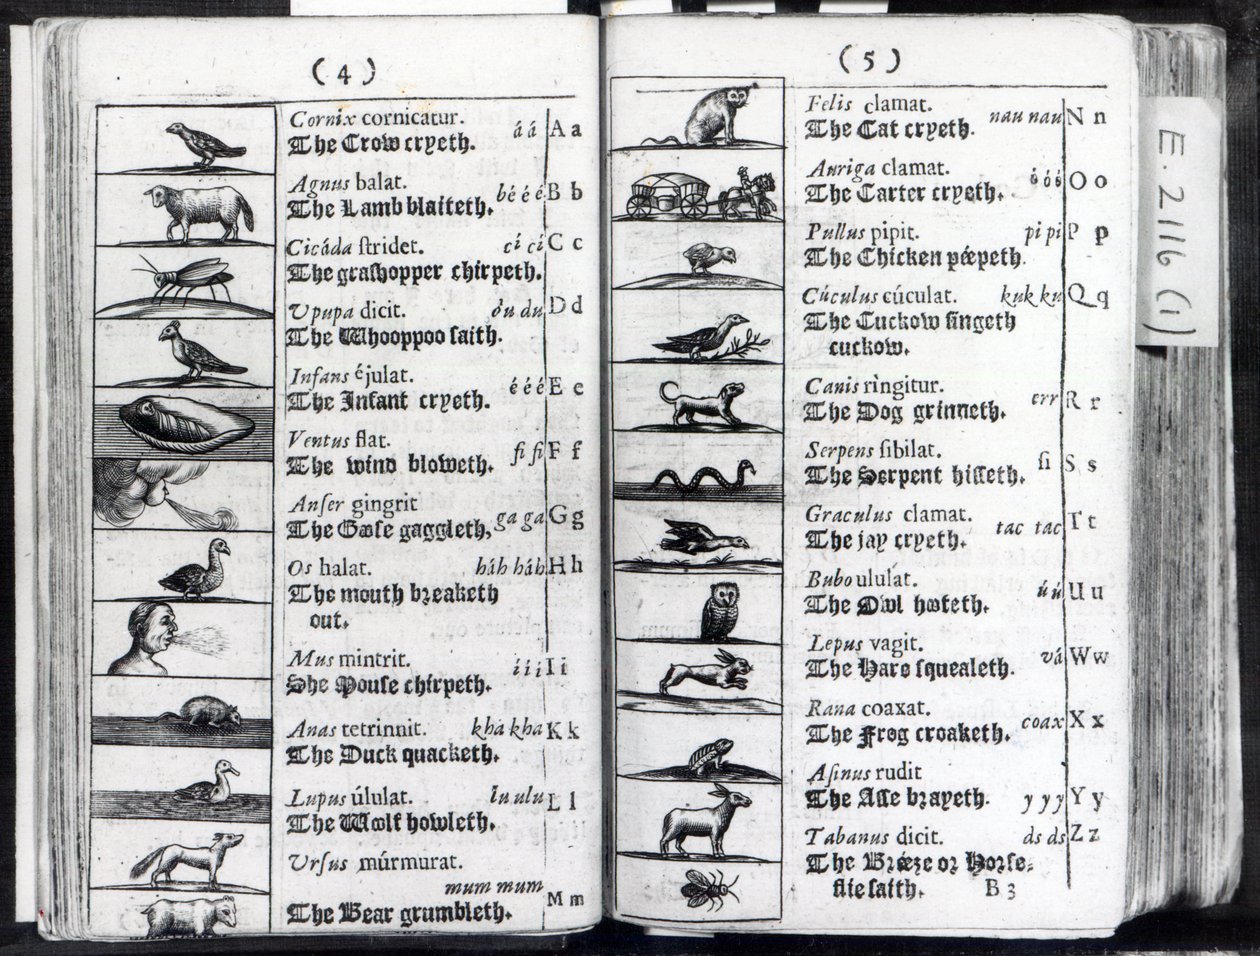 (4)
Cornix cornicatur.
The Crow cryeth.
á á
A a
Agnus balat.
The Lamb blaiteth.
bé é é
B b
Cicáda ſtridet.
The graſhopper chirpeth.
cí cí
C c
Upupa dicit.
The Whooppoo ſaith.
du du
D d
Infans éjulat.
The Infant cryeth.
é é é
E e
Ventus flat.
The wind bloweth.
fi fi
F f
Anſer gingrit
The Gooſe gaggleth,
ga ga
G g
Os halat.
The mouth breaketh
out.
háh háh
H h
Mus mintrit.
She Mouſe chirpeth.
í í í
I i
Anas tetrinnit.
The Duck quacketh.
kha kha
K k
Lupus úlulat.
The Woolf howleth.
lu ulu
L l
Urſus múrmurat.
mum mum
The Bear grumbleth.
M m
(5)
Felis clamat.
The Cat cryeth.
nau nau
N n
Auriga clamat.
The Carter cryeth.
ó ó ó
O o
Pullus pipit.
The Chicken péepeth
pi pi
P p
Cúculus cúculat.
The Cuckow ſingeth
cuckow.
kuk ku
Q q
Canis rìngitur.
The Dog grinneth.
err
R r
Serpens ſibilat.
The Serpent hiſſeth.
ſi
S s
Graculus clamat.
The jay cryeth.
tac tac
T t
Bubo ululat.
The Owl hooteth.
ú ú
U u
Lepus vagit.
The Hare ſquealeth.
vá
W w
Rana coaxat.
The Frog croaketh.
coax
X x
Aſinus rudit
The Aſſe brayeth.
y y y
Y y
Tabanus dicit.
The Bréeze or Horſe-
flie ſaith.
ds ds
Z z
B 3
E. 2116 (1)